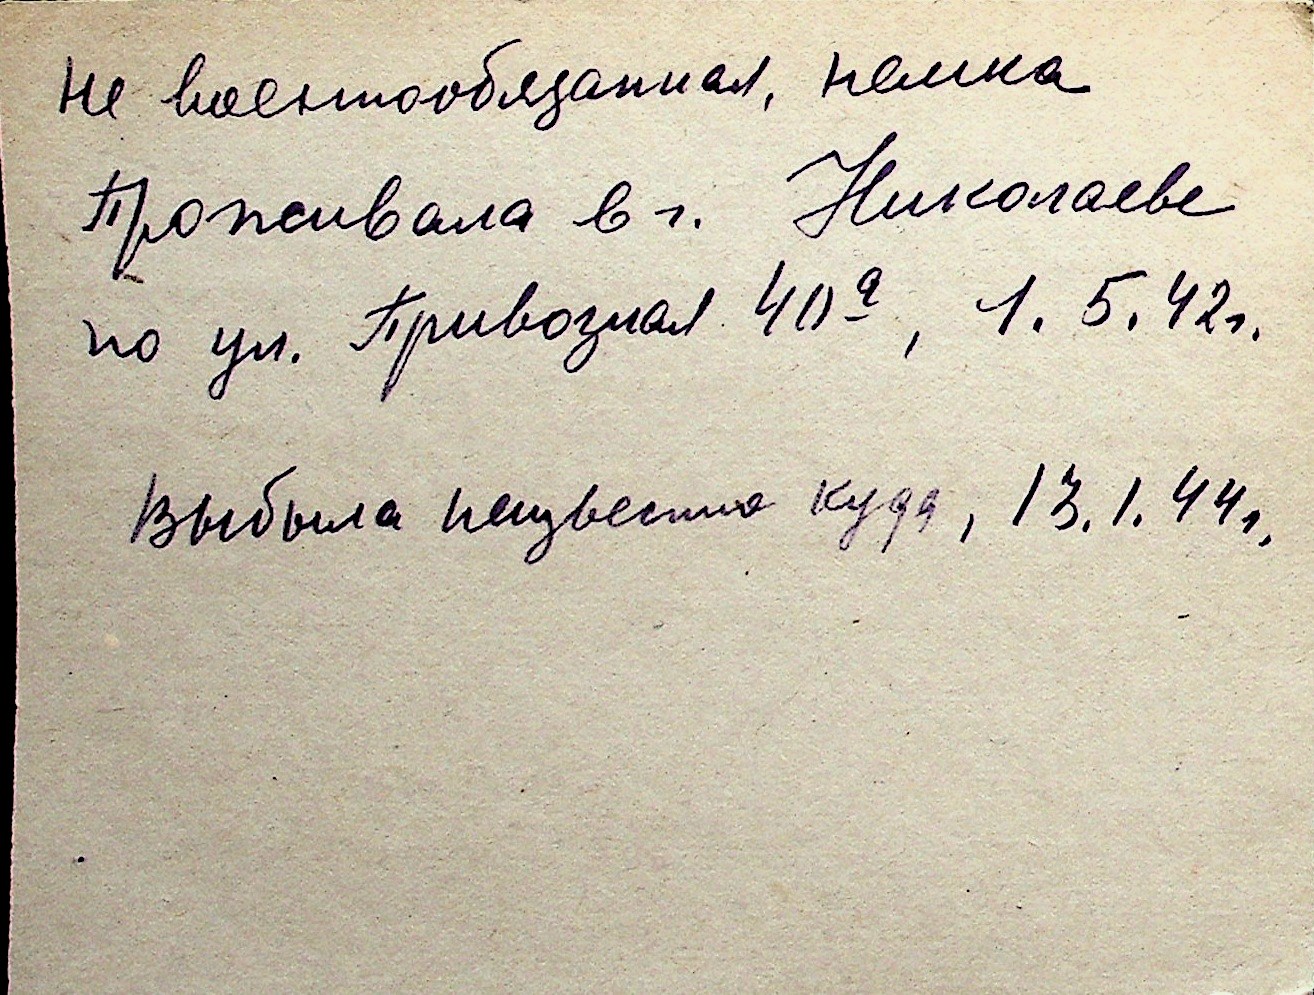 Не военнообязанная, немка
Проживала в г. Николаеве
по ул. Привозная 40а, 1.5.42г.
Выбыла неизвестно куда, 13.1.44г.